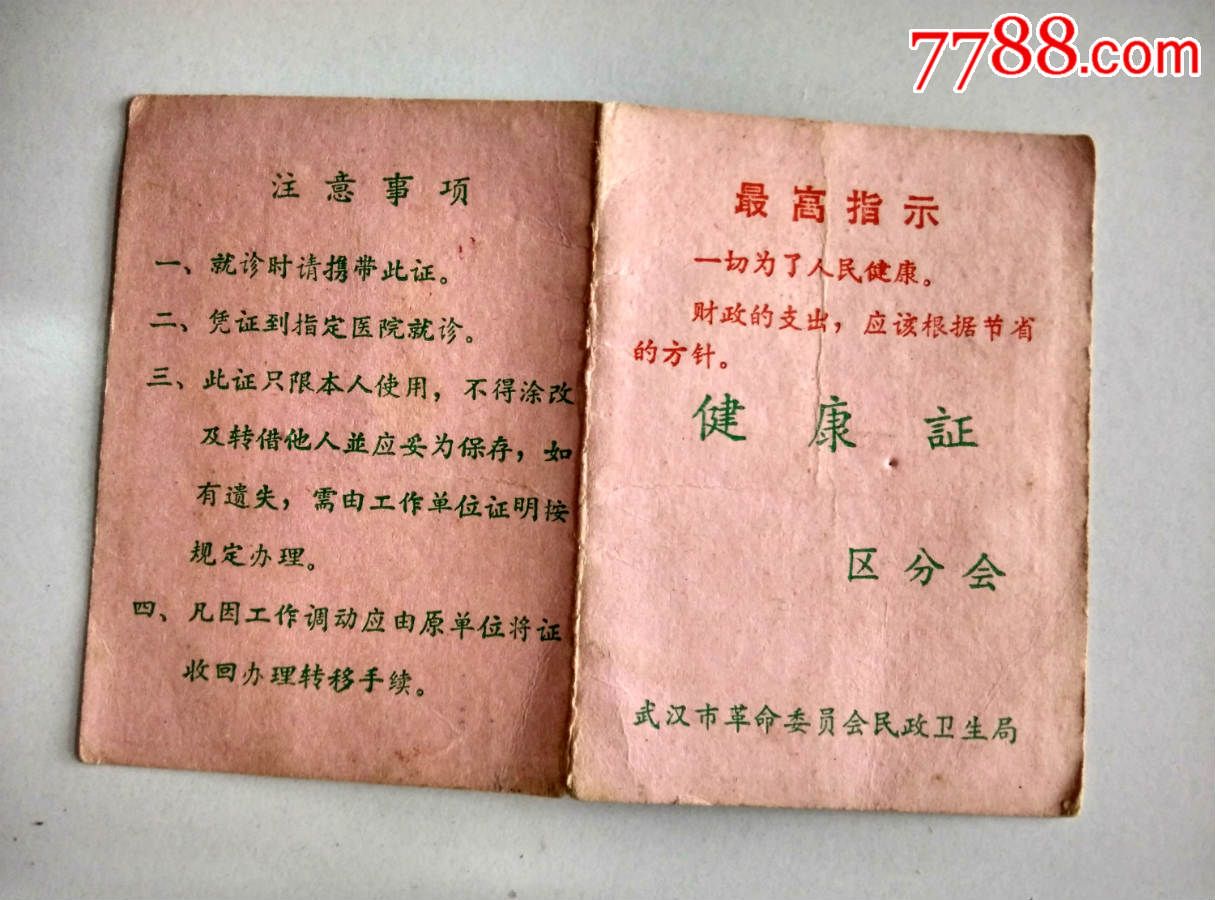 7788.com
注意事项
一、就诊时请携带此证。
二、凭证到指定医院就诊。
三、此证只限本人使用，不得涂改
及转借他人並应妥为保存，如
有遗失，需由工作单位证明按
规定办理。
四、凡因工作调动应由原单位将证
收回办理转移手续。
最高指示
一切为了人民健康。
财政的支出，应该根据节省
的方针。
健康証
区分会
武汉市革命委员会民政卫生局